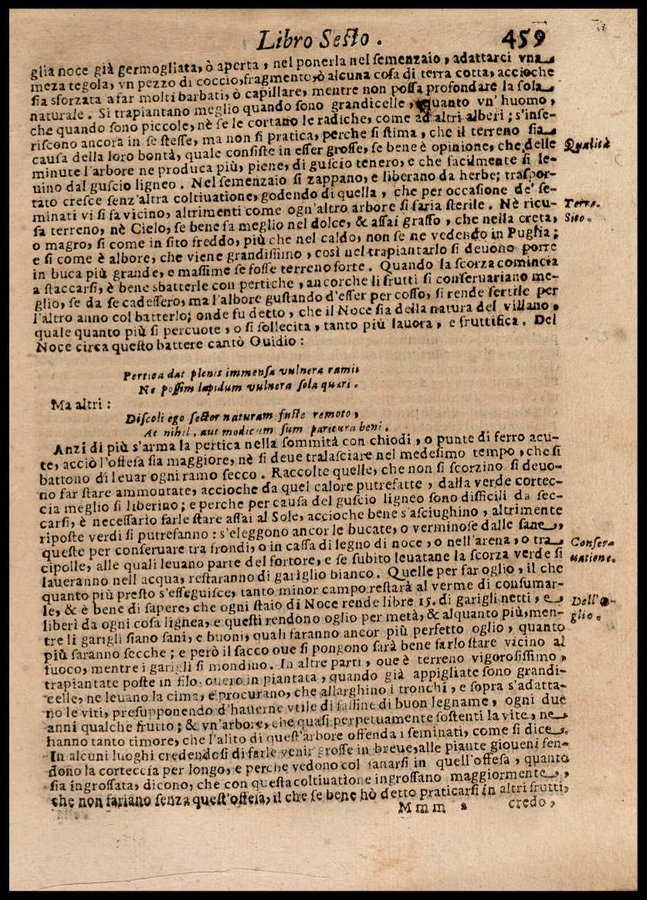 Libro Sesto. 459
glia noce già germogliata, ò aperta, nel ponerla nel semenzaio, adattarci vna
meza tegola, vn pezzo di coccio, fragmento, ò alcuna cosa di terra cotta, accioche
sia sforzata a far molti barbati, ò capillare, mentre non possa profondare la sola
naturale. Si trapiantano meglio quando sono grandicelle, quanto vn' huomo,
che quando sono piccole, nè se le cortano le radiche, come ad altri alberi; s'inse-
riscono ancora in se stesse, ma non si pratica, perche si stima, che il terreno sia
causa della loro bontà, quale consiste in esser grosse, se bene è opinione, che delle
minute l'arbore ne produca più, piene, di guscio tenero, e che facilmente si le-
uino dal guscio ligneo. Nel semenzaio si zappano, e liberano da herbe; traspor-
tato cresce senz'altra coltiuatione, godendo di quella, che per occasione de' se-
minati vi si fa vicino, altrimenti come ogn'altro arbore si faria sterile. Nè ricu-
sa terreno, nè Cielo, se bene fa meglio nel dolce, & assai grasso, che nella creta,
o magro, si come in sito freddo, più che nel caldo, non se ne vedendo in Puglia;
e si come è albore, che viene grandissimo, così nel trapiantarlo si deuono porre
in buca più grande, e massime se fosse terreno forte. Quando la scorza comincia
a staccarsi, è bene sbatterle con pertiche, ancorche li frutti si conseruariano me-
glio, se da se cadessero, ma l'albore gustando d'esser percosso, si rende fertile per
l'altro anno col batterlo; onde fu detto, che il Noce sia della natura del villano,
quale quanto più si percuote, o si sollecita, tanto più lauora, e fruttifica. Del
Noce circa questo battere cantò Ouidio:
Pertica dat plenis immensa vulnera ramis
Ne possim lapidum vulnera sola queri.
Ma altri:
Discoli ego sector naturam fuste remoto,
At nihil, aut modicum sum paritura beni.
Anzi di più s'arma la pertica nella sommità con chiodi, o punte di ferro acu-
te, acciò l'offesa sia maggiore, nè si deue tralasciare nel medesimo tempo, che si
battono di leuar ogni ramo secco. Raccolte quelle, che non si scorzino si deuo-
no far stare ammontate, accioche da quel calore putrefatte, dalla verde cortec-
cia meglio si liberino; e perche per causa del guscio ligneo sono difficili da sec-
carsi, è necessario farle stare assai al Sole, accioche bene s'asciughino, altrimente
riposte verdi si putrefanno: s'eleggono ancor le bucate, o verminose dalle sane,
queste per conseruare tra frondi, o in cassa di legno di noce, o nell'arena, o tra
cipolle, alle quali leuano parte del fortore, e se subito leuatane la scorza verde si
laueranno nell'acqua, restaranno di gariglio bianco. Quelle per far oglio, il che
quanto più presto s'esseguisce, tanto minor campo restarà al verme di consumar-
le, & è bene di sapere, che ogni staio di Noce rende libre 15. di garigli netti, e
liberi da ogni cosa lignea, e questi rendono oglio per metà, & alquanto più, men-
tre li garigli siano sani, e buoni, quali faranno ancor più perfetto oglio, quanto
più saranno secche; e però il sacco oue si pongono sarà bene farlo stare vicino al
fuoco, mentre i garigli si mondino. In altre parti, oue è terreno vigorosissimo,
trapiantate poste in filo ouero in piantata, quando già appigliate sono grandi-
celle, ne leuano la cima, e procurano, che allarghino i tronchi, e sopra s'adatta-
no le viti, presupponendo d'hauerne vtile di fassine di buon legname, ogni due
anni qualche frutto; & vn'arbore, che quasi perpetuamente sostenti la vite, ne
hanno tanto timore, che l'alito di quest'arbore offenda i seminati, come si dice.
In alcuni luoghi credendosi di farle venir grosse in breue, alle piante gioueni fen-
dono la corteccia per longo, e perche vedono col sanarsi in quell'offesa, quanto
sia ingrossata, dicono, che con questa coltiuatione ingrossano maggiormente,
che non fariano senza quest'offesa, il che se bene hò detto praticarsi in altri frutti,
Mmm 2 credo,
Qualità
Terra.
Sito.
Conser-
uatione.
Dell'O-
glio.